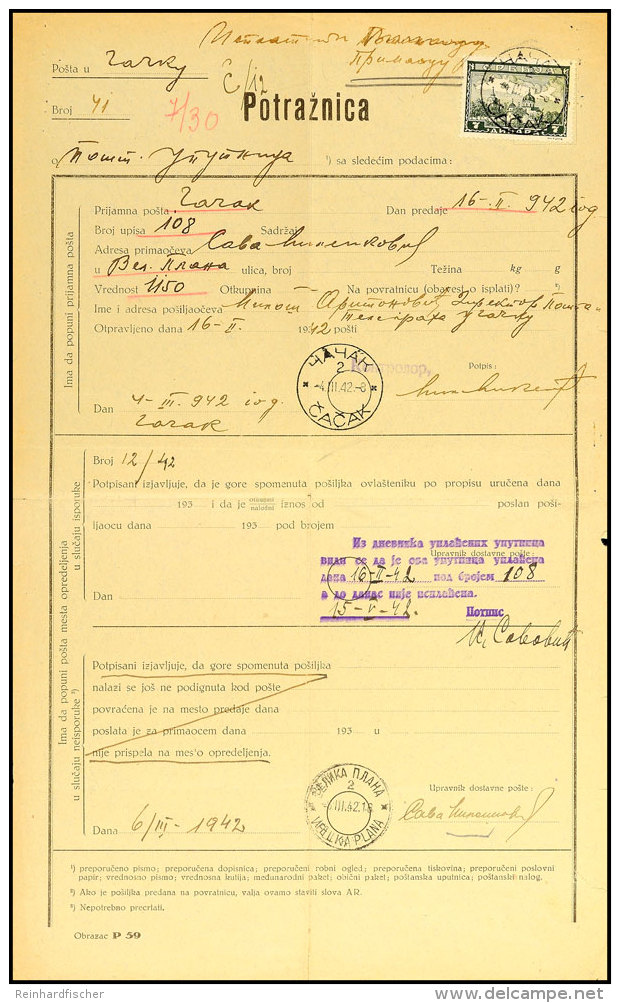 Pošta u Чачку
Č/12
Broj 41
7/30
Potražnica
ЧАЧАК
ЧАČАК
СРБИЈА
7 ДИНАРА 7
o Пошт. Упутница ¹) sa sledećim podacima:
Ima da popuni prijamna pošta
Prijamna pošta Чачак Dan predaje 16-II-942 год
Broj upisa 108 Sadržaj
Adresa primaočeva Сава
u Вел. Плана ulica, broj Težina kg g
Vrednost 1150 Otkupnina Na povratnicu (obavest o isplati)? ²)
Ime i adresa pošiljaočeva Милош Директор Поште
телеграфа у Чачку
Otpravljeno dana 16-II- 1942 pošti
Контролор,
ЧАЧАК
2
4.III.42.-8
ČAČAK
Potpis:
Dan 4-III-942 год.
Чачак
Ima da popuni pošta mesta opredeljenja
u slučaju isporuke
Broj 12/42
Potpisani izjavljuje, da je gore spomenuta pošiljka ovlašteniku po propisu uručena dana
193 i da je otkupni iznos od poslan poši-
nalodni
ljaocu dana 193 pod brojem
Из дневника уплаћених упутница
види се да је ова упутница уплаћена
Upravnik dostavne pošte:
дана 16-II-42 под бројем 108
Dan
а до данас није исплаћена.
15-V-42. Потпис
u slučaju neisporuke ³)
Potpisani izjavljuje, da gore spomenuta pošiljka
nalazi se još ne podignuta kod pošte
povraćena je na mesto predaje dana
poslata je za primaocem dana 193 u
nije prispela na mes'o opredeljenja.
ВЕЛИКА ПЛАНА
2
.III.42.18
VELIKA PLANA
Upravnik dostavne pošte:
Dana 6/III-1942
¹) preporučeno pismo; preporučena dopisnica; preporučeni robni ogled; preporučena tiskovina; preporučeni poslovni
papir; vrednosno pismo; vrednosna kutija; međunarodni paket; obični paket; poštanska uputnica; poštanski nalog.
²) Ako je pošiljka predana na povratnicu, valja ovamo staviti slova AR.
³) Nepotrebno precrtati.
Obrazac P 59
Reinhardfischer
delcampe.net